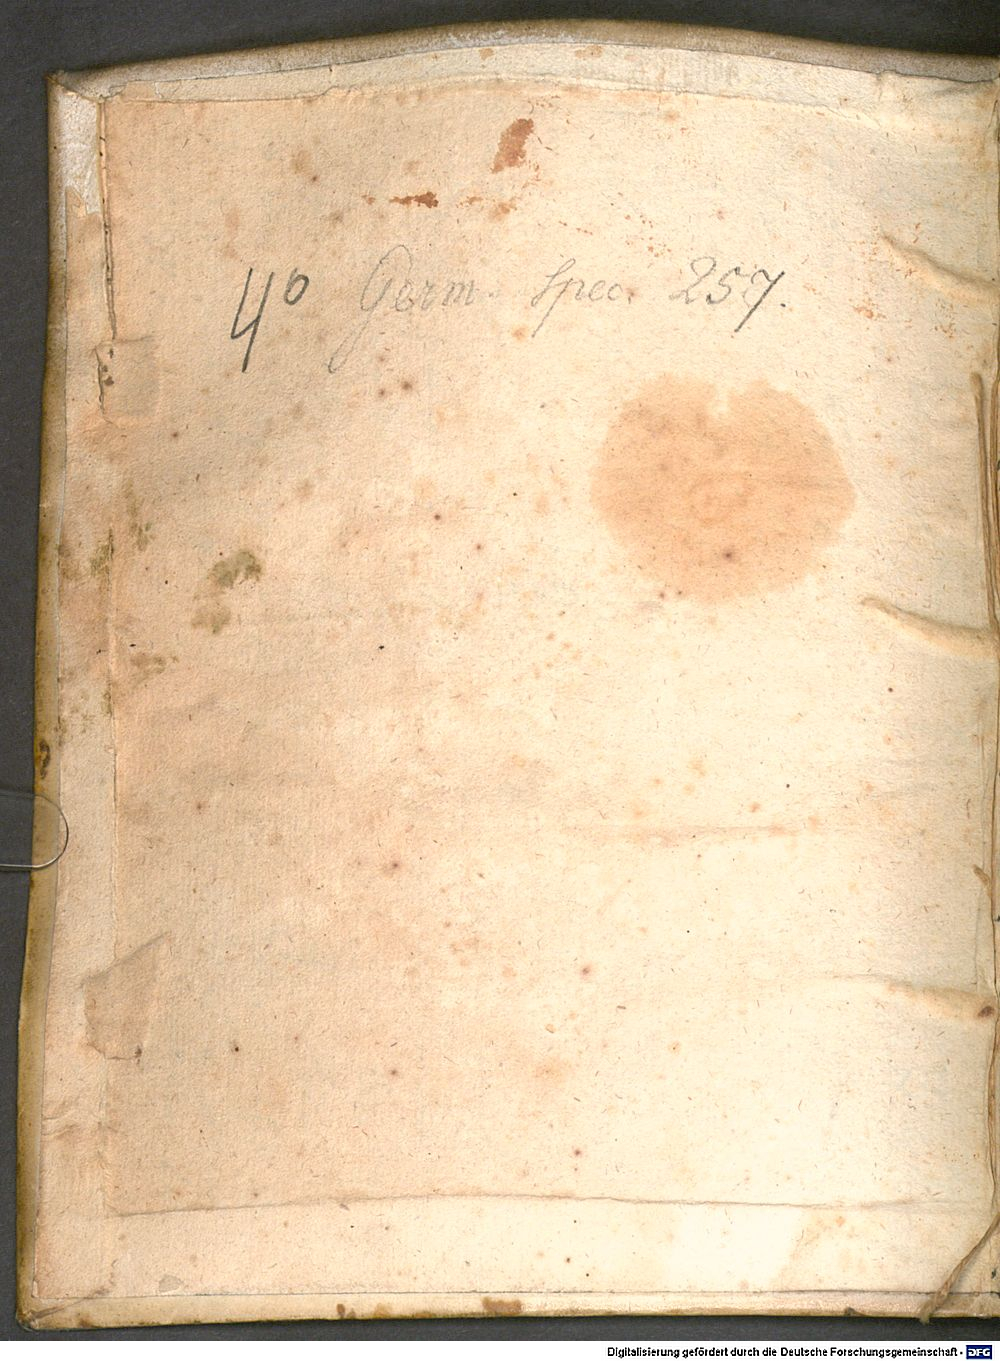 4° Germ. spec. 257.
Digitalisierung gefördert durch die Deutsche Forschungsgemeinschaft - DFG